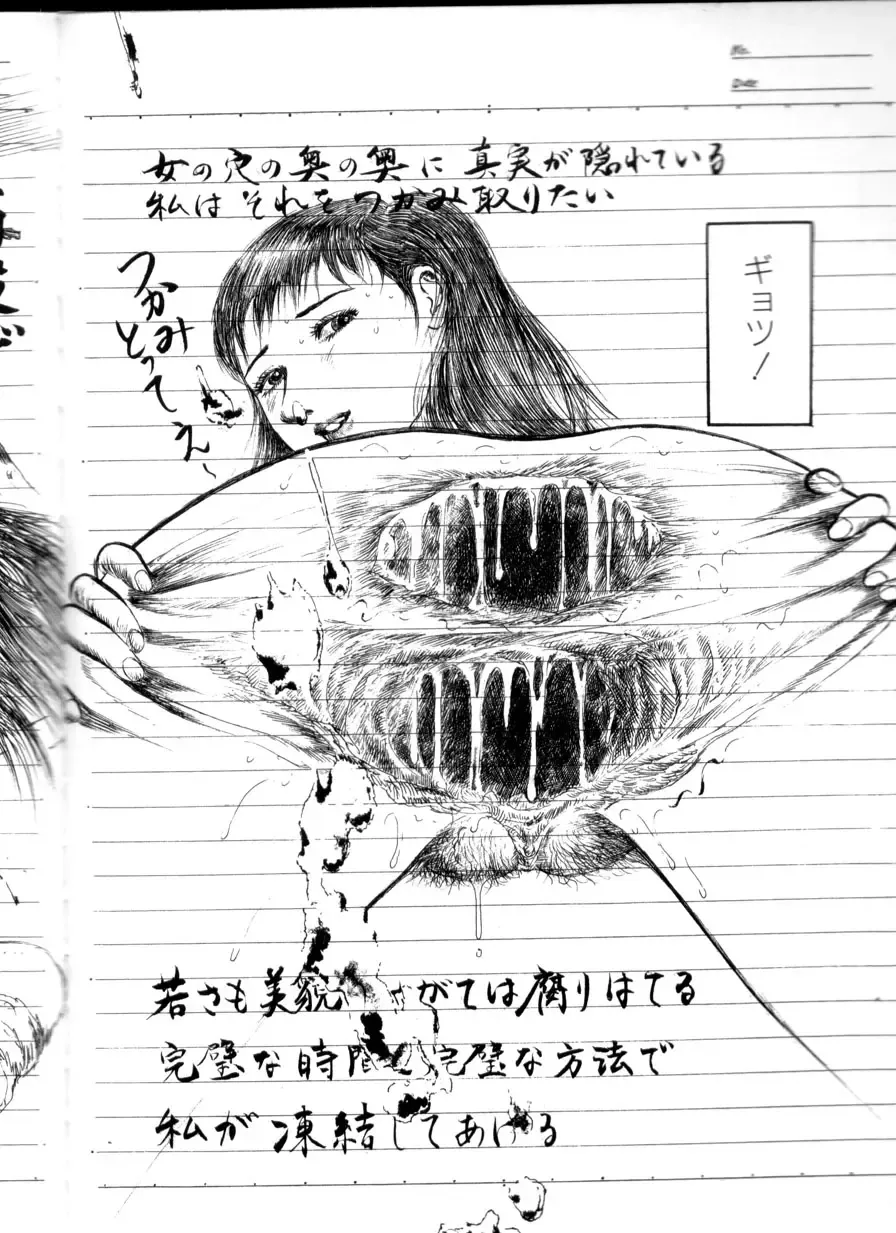 No.
DATE
女の穴の奥の奥に真実が隠れている
私はそれをつかみ取りたい
ギョッ!
つかみ
とってえ〜
若さも美貌 がては腐りはてる
完璧な時間 完璧な方法で
私が凍結してあげる